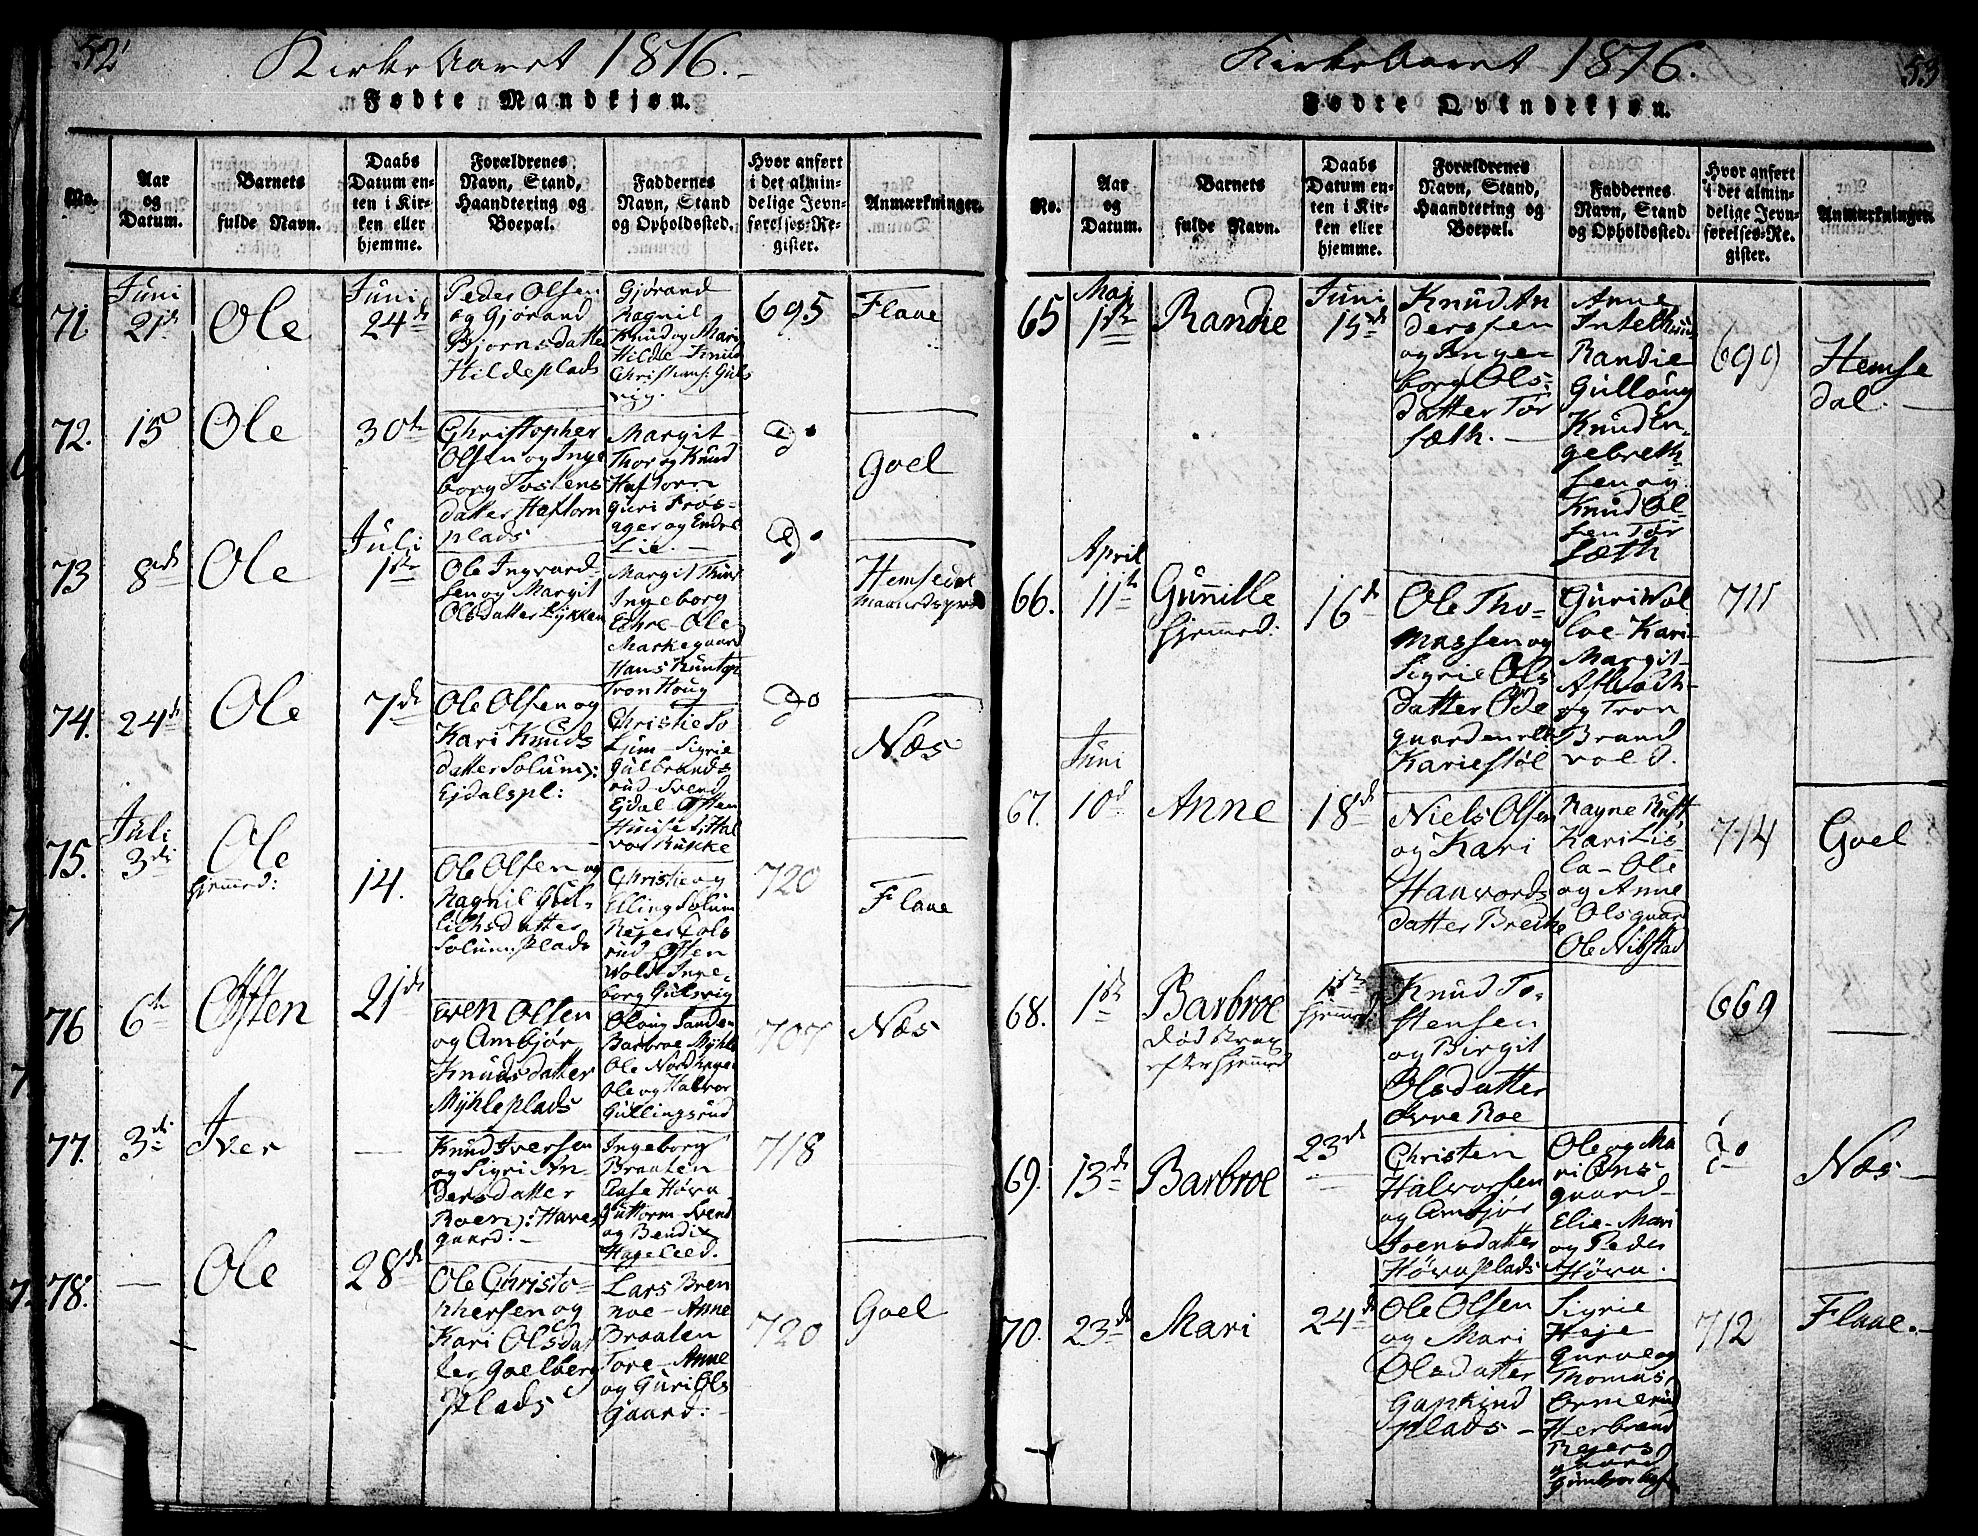 52.
Kirke Aaret 1816.
Fødte Mandkjøn.
No.
Aar
og
Datum.
Barnets
fulde Navn.
Daabs
Datum en-
ten i Kir-
ken eller
hjemme.
Forældrenes
Navn, Stand,
Haandtering og
Boepæl.
Faddernes
Navn, Stand
og Opholdssted.
Hvor anført
i det almin-
delige Jevn-
førelses-Re-
gister.
Anmærkninger.
71.
Juni
21de
Ole
Juni
24de
Peder Olsen
og Gjørand
Bjornsdatter
Hildeplads
Gjørand
Ragnil
Knud og Mari
Hilde - Knud
Christians: Guls
vig.
695
Flaae
72.
15
Ole
30te
Christopher
Olsen og Inge
borg Tostens
datter Haftorn
plads
Margit
Thor og Knud
Haftorn
Guri Frøs-
ager og Endre
Lie. -
do
Goel
73
8de
Ole
Juli
1ste
Ole Ingvard-
sen og Margit
Olsdatter Lykken
Margit
Ingeborg
Ole
Markegaard
Hans
Tron Houg
do
Hemsedal
74.
24de
Ole
7de
Ole Olsen og
Kari Knuds
datter Solum):
Ejdalspl:
Christie So
lum - Sigrie
Gulbrands
rud - Svend
Ejdal - Østen
vor Rukke
do
Næs
75.
Juli
3die
Ole
hjemmed:
14.
Ole Olsen og
Ragnil
datter
Solum Plads
Christie og
Elling Solum
rud - Østen
Wold - Inge-
borg Gulsvig
720
Flaae
76
6te
Østen
21de
Even Olsen
og Ambjør
Knudsdatter
Myhleplads
Olaug Sanden
Barbroe Myhle
Ole
Ole og Halvor
Gullingsrud
707
Næs
77.
3die
Iver
-
Knud Iversen
og Sigri An
dersdatter
Roen): Have
gaard: -
Ingeborg
Braaten
Aase Høva
Guttorm - Svend
og Bendix
Hageleed.
718
78.
-
Ole
28de
Ole Christo-
phersen og
Kari Olsdat
ter Goelberg
Plads
Lars Bren
noe - Anne
Braaten
Tore - Anne
og Guri Ols
gaard: -
720
Goel
53
Kirke Aaret 1816.
Fødte Qvindekjøn.
No.
Aar
og
Datum.
Barnets
fulde Navn.
Daabs
Datum en-
ten i Kir-
ken eller
hjemme.
Forældrenes
Navn, Stand,
Haandtering og
Boepæl.
Faddernes
Navn, Stand
og Opholdssted.
Hvor anført
i det almin-
delige Jevn-
førelses-Re-
gister.
Anmærkninger.
65
Maj
1ste
Randie
Juni
15de
Knud An
dersen
og Inge
borg Ols-
datter Tør
sæth. -
Anne
Randie
Gullaug
Knud En-
gebreth-
sen og
Knud Ol-
sen Tør
sæth
699
Hemse
dal. -
66.
April
11te
Gunnille
hjemmed:
16de
Ole Tho-
massen og
Sigrie Ols
datter Øde
gaarden
Kariestøl
Guri Wol
loe - Kari -
Margit -
og Tron
Brand
vold.
711
67.
Juni
10de
Anne
18de
Niels Olsen
og Kari
Haavords
datter Breike
Kari Lis-
la - Ole
og Anne
Olsgaard
Ole Nibstad
714
Goel
68.
1ste
Barbroe
død strax
efter hjemmed
1ste
hjemmed:
Knud To-
stensen
og Birgit
Olsdatter
Øvre Roe
669
-
69.
13de
Barbroe
23de
Christen
Halvorsen
og Ambjør
Joensdatter
Høva Plads
Ole og Ma
ri
gaard -
Elie - Mari
og Peder
Høva.
do
Næs -
70.
23de
Mari
24de
Ole Olsen
og Mari
Olsdatter
Gapkind
plads -
Sigrie
Heje
Gurve og
Thomas
Ormerud
Herbrand
712
Flaae. -